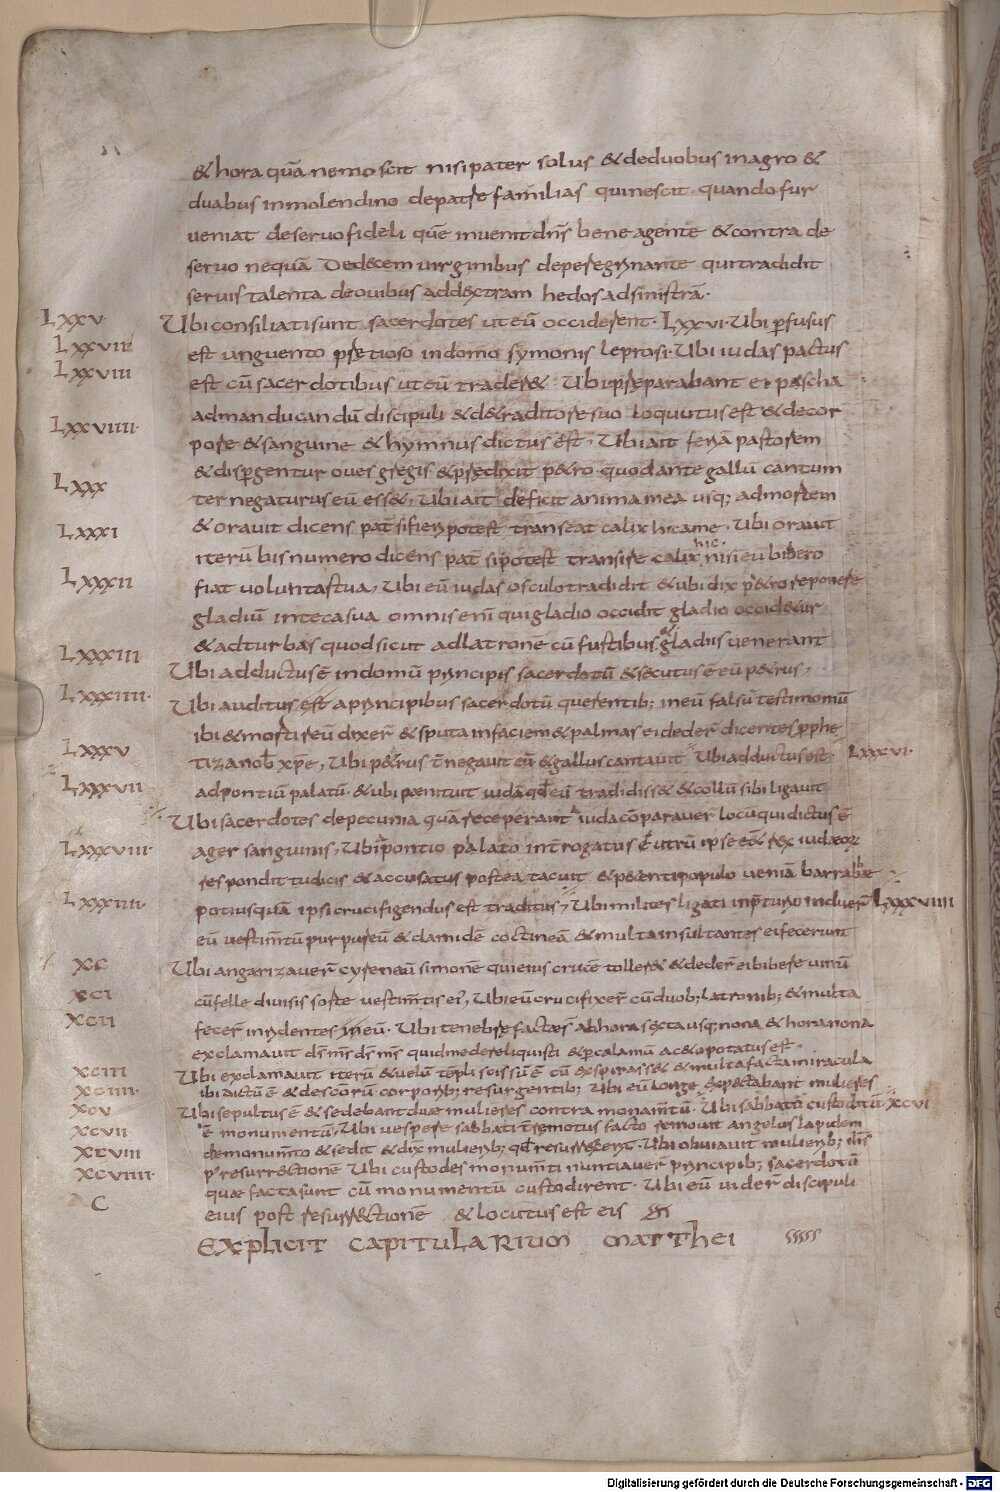 & hora quā nemo scit nisi pater solus & deduobus inagro &
duabus inmolendino depatre familias quinescit quando fur
ueniat deseruo fideli quē inuenit dn̄s bene agente & contra de
seruo nequā Ded&cem uirginibus deperegrinante qui tradidit
seruis talenta deouibus add&xtram hedos adsinistrā.
LXXV Ubi consiliati sunt sacerdotes ut eū occiderent. LXXVI. Ubi p̄fusus
LXXVII est unguento pretioso indomo symonis leprosi. Ubi iudas pactus
LXXVIII est cū sacerdotibus ut eū trader&. Ubi preparabant ei pascha
admanducandū discipuli & d&raditore suo loquutus est & decor
LXXVIIII. pore & sanguine & hymnus dictus est, Ubi ait feriā pastorem
& disp̄gentur oues gregis & predixit p&ro quod ante gallū cantum
LXXX ter negaturus eū ess&, Ubi ait deficit anima mea usq; admortem
LXXXI & orauit dicens pat̄ si fieri potest transeat calix hic ame, Ubi orauit
iterū bis numero dicens pat̄ si potest transire calix hic. nisi eū bibero
LXXXII fiat uoluntas tua, Ubi eū iudas osculo tradidit & ubi dix̄ p&ro reponere
gladiū inteca sua omnis enī qui gladio occidit gladio occid&ur
& ad turbas quod sicut adlatronē cū fustibus & gladiis uenerant
LXXXIII Ubi adductus ē indomū principis sacerdotū & secutus ē eū p&rus,
LXXXIIII. Ubi auditus est aprincipibus sacerdotū querentib; ineū falsū testimoniū
ibi & morti reū dixer̄ & sputa infaciem & palmas ei deder̄ dicentes p̄phe
LXXXV tiza nob̄ xp̄e, Ubi p&rus t̄ negauit eū & gallus cantauit Ubi adductus est LXXXVI.
LXXXVII adpontiū palatū. & ubi penituit iudā qd̄ eū tradidiss& & collū sibi ligauit
Ubi sacerdotes depecunia quā receperant a iuda cōparauer̄ locū qui dictus ē
LXXXVIII. ager sanguinis, Ubi a pontio palato int̄rogatus ē utrū ipse ess& rex iudæor
respondit tu dicis & accusatus postea tacuit & p&enti populo ueniā barrabbæ
LXXXIIII. potius quā ipsi crucifigendus est traditus, Ubi milites ligati inp̄turio induer̄ LXXXVIIII
eū uestim̄tū purpureū & clamidē coctineā & multa insultantes ei fecerunt
XC Ubi angarizauer̄ cyreneū simonē qui eius crucē toller& & deder̄ ei bibere uinū
XCI cū felle diuisis sorte uestim̄tis ei', Ubi eū crucifixer̄ cū duob; latronib; & multa
XCII fecer̄ inridentes in eū. Ubi tenebre factæ st̄ abhora sexta usq; nona & hora nona
exclamauit ds̄ ms̄ ds̄ ms̄ quid me dereliquisti & p̄ calamū ac&o potatus est,
XCIII Ubi exclamauit iterū & uelū tēpli scissū ē cū expirass& & multa facta miracula
XCIIII. ibi dictū ē & descorū corporib; resurgentib; Ubi eū longe expectabant mulieres
XCV Ubi sepultus ē & sedebant duæ mulieres contra monam̄tū. Ubi sabbatū custoditū XCVI
XCVII ē monumentū, Ubi uespere sabbati t̄remotus facto remouit angelus lapidem
XCVIII demonum̄to & sedit & dix̄ mulierib; qd̄ resurrexent. Ubi obuiauit mulierib; ih̄s
XCVIIII. p' resurrectionē Ubi custodes monum̄ti nuntiauer̄ principib; sacerdotū
quæ facta sunt cū monumentū custodirent. Ubi eū uider̄ discipuli
C eius post resurrectionē & locutus est eis
EXPLICIT CAPITULARIUM MATTHEI